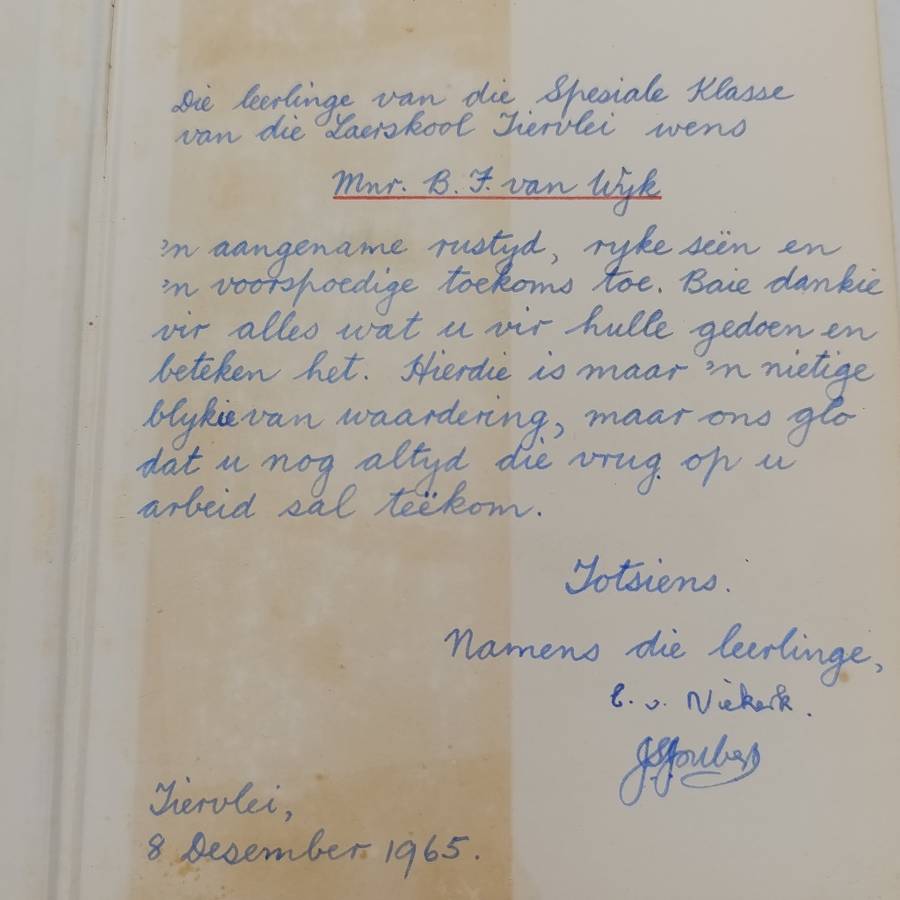 Die leerlinge van die Spesiale Klasse
van die Laerskool Tiervlei wens
Mnr. B. F. van Wyk
'n aangename rustyd, ryke seën en
'n voorspoedige toekoms toe. Baie dankie
vir alles wat u vir hulle gedoen en
beteken het. Hierdie is maar 'n nietige
blykie van waardering, maar ons glo
dat u nog altyd die vrug op u
arbeid sal teëkom.
Totsiens.
Namens die leerlinge,
E. v. Niekerk.
JSJoubert
Tiervlei,
8 Desember 1965.